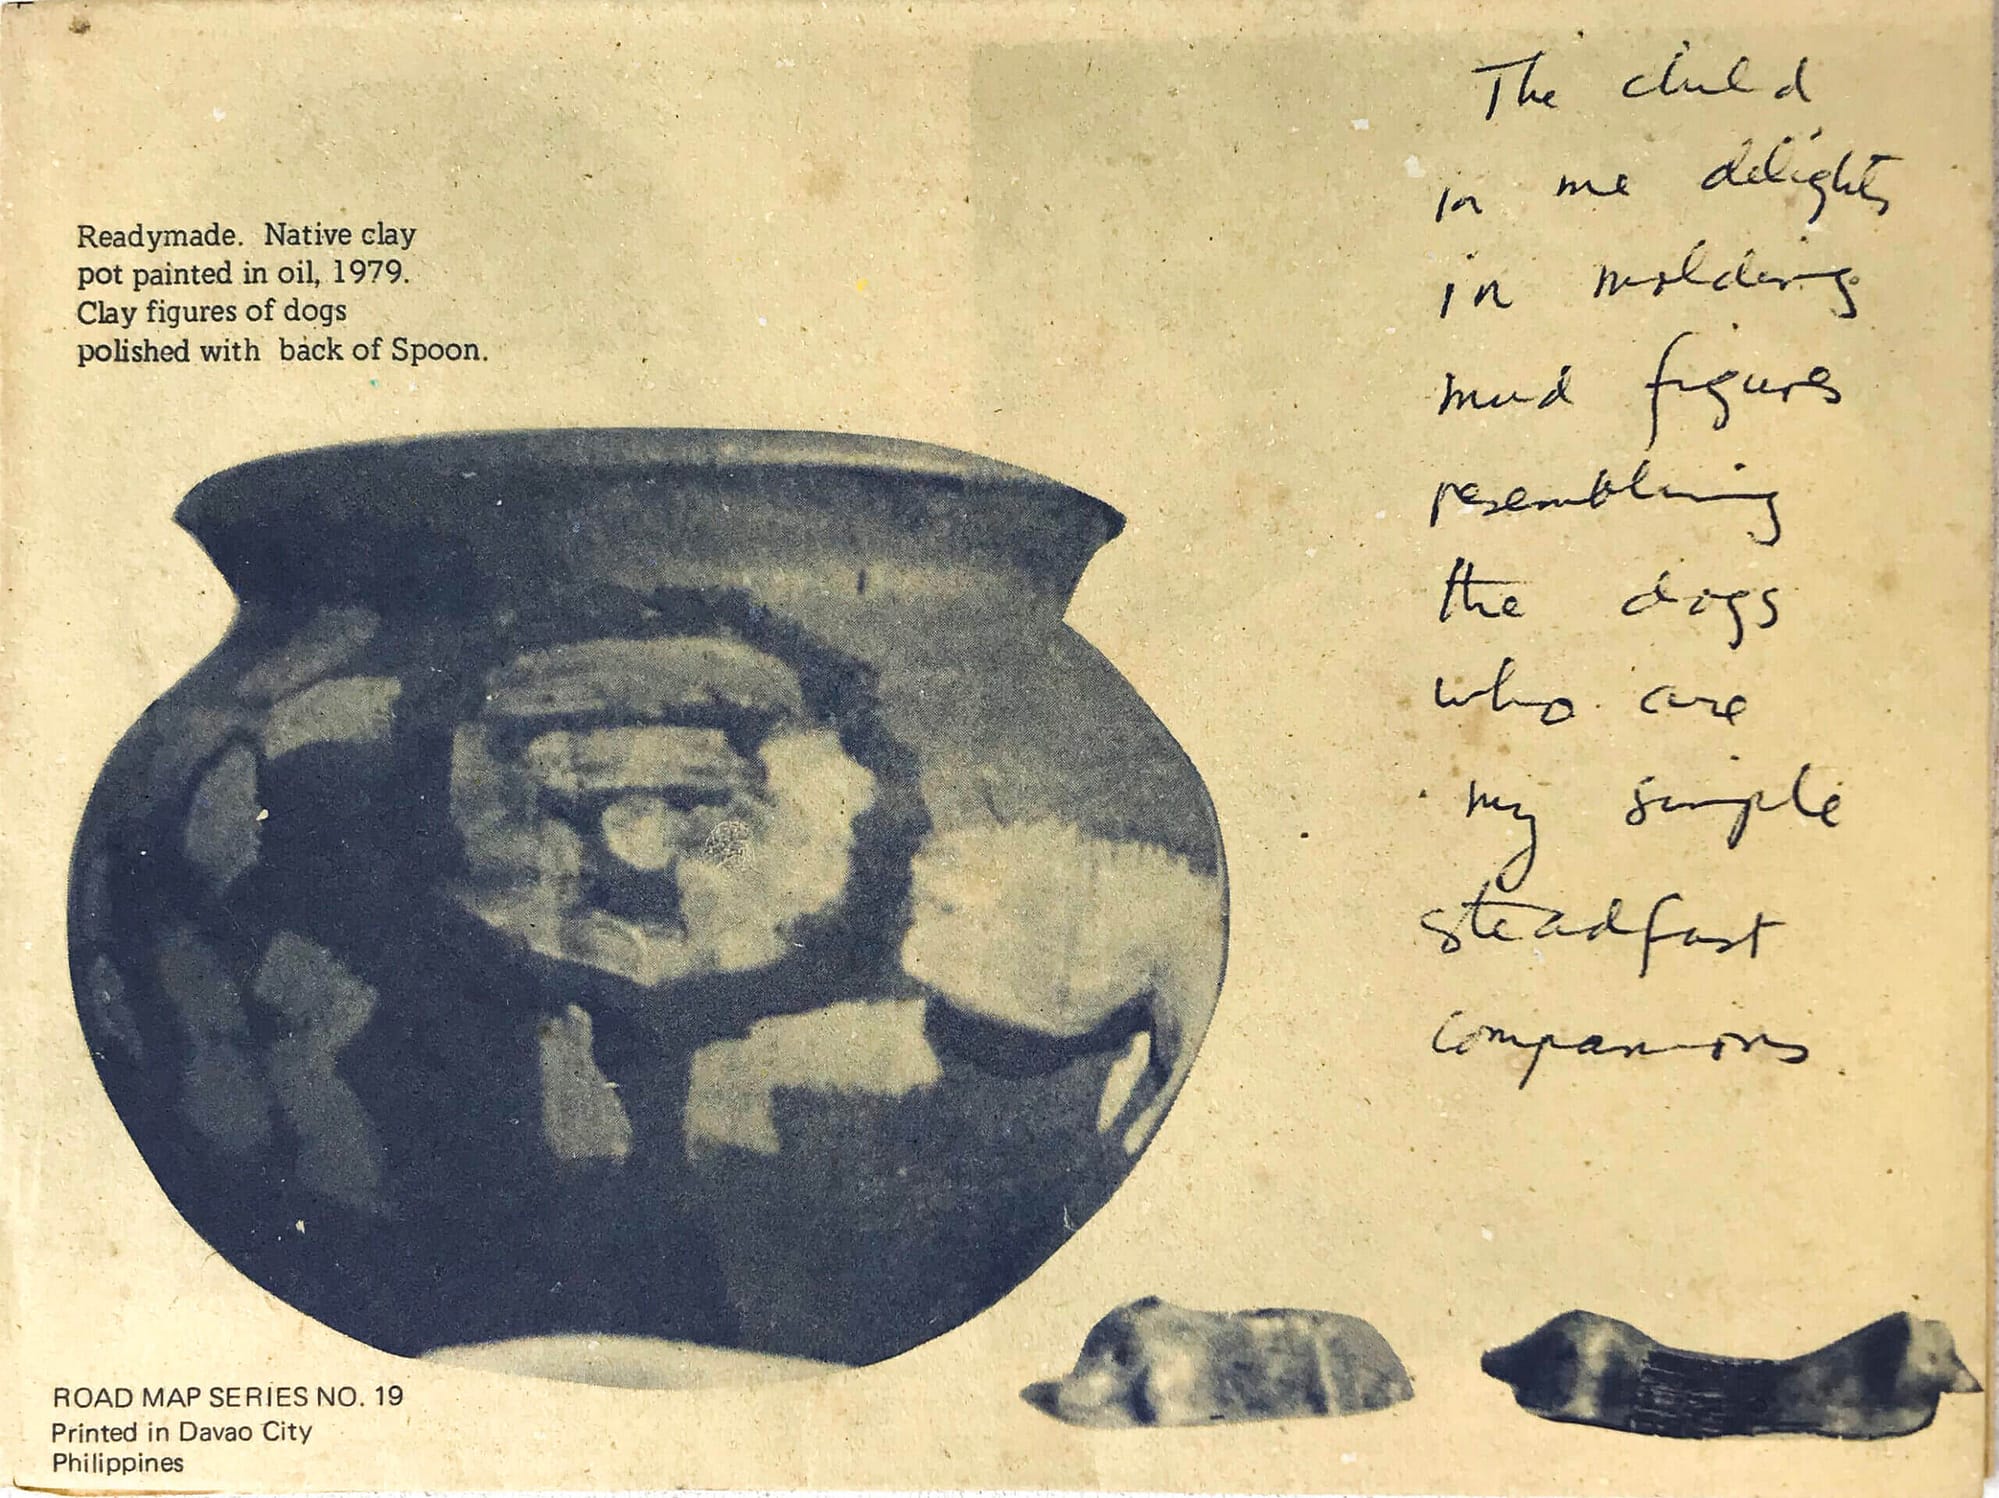 Readymade. Native clay
pot painted in oil, 1979.
Clay figures of dogs
polished with back of Spoon.
The child
in me delights
in molding
mud figures
resembling
the dogs
who are
my simple
steadfast
companions
ROAD MAP SERIES NO. 19
Printed in Davao City
Philippines